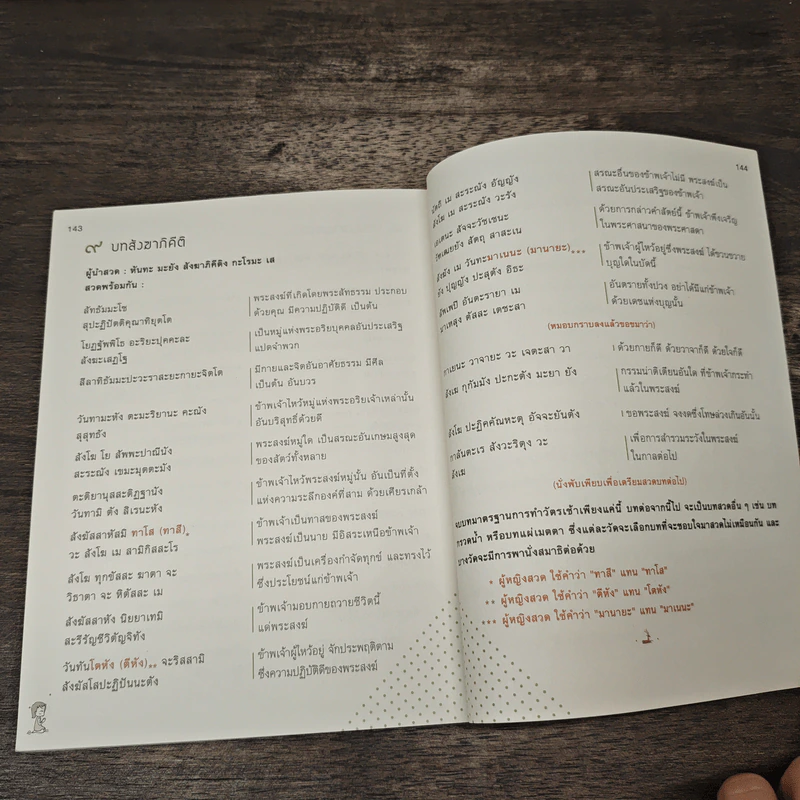 143
๙ บทสังฆาภิคีติ
ผู้นำสวด : หันทะ มะยัง สังฆาภิคีติง กะโรมะ เส
สวดพร้อมกัน :
สัทธัมมะโช
สุปะฏิปัตติคุณาทิยุตโต
พระสงฆ์ที่เกิดโดยพระสัทธรรม ประกอบ
ด้วยคุณ มีความปฏิบัติดี เป็นต้น
โยฏฐัพพิโธ อะริยะปุคคะละ
สังฆะเสฏโฐ
เป็นหมู่แห่งพระอริยบุคคลอันประเสริฐ
แปดจำพวก
สีลาทิธัมมะปะวะราสะยะกายะจิตโต
มีกายและจิตอันอาศัยธรรม มีศีล
เป็นต้น อันบวร
วันทามะหัง ตะมะริยานะ คะณัง
สุสุทธัง
ข้าพเจ้าไหว้หมู่แห่งพระอริยเจ้าเหล่านั้น
อันบริสุทธิ์ด้วยดี
สังโฆ โย สัพพะปาณีนัง
สะระณัง เขมะมุตตะมัง
พระสงฆ์หมู่ใด เป็นสรณะอันเกษมสูงสุด
ของสัตว์ทั้งหลาย
ตะติยานุสสะติฏฐานัง
วันทามิ ตัง สิเรนะหัง
ข้าพเจ้าไหว้พระสงฆ์หมู่นั้น อันเป็นที่ตั้ง
แห่งความระลึกองค์ที่สาม ด้วยเศียรเกล้า
สังฆัสสาหัสมิ ทาโส (ทาสี)*
วะ สังโฆ เม สามิกิสสะโร
ข้าพเจ้าเป็นทาสของพระสงฆ์
พระสงฆ์เป็นนาย มีอิสระเหนือข้าพเจ้า
สังโฆ ทุกขัสสะ ฆาตา จะ
วิธาตา จะ หิตัสสะ เม
พระสงฆ์เป็นเครื่องกำจัดทุกข์ และทรงไว้
ซึ่งประโยชน์แก่ข้าพเจ้า
สังฆัสสาหัง นิยยาเทมิ
สะรีรัญชีวิตัญจิทัง
ข้าพเจ้ามอบกายถวายชีวิตนี้
แด่พระสงฆ์
วันทันโตหัง (ตีหัง)** จะริสสามิ
สังฆัสโสปะฏิปันนะตัง
ข้าพเจ้าผู้ไหว้อยู่ จักประพฤติตาม
ซึ่งความปฏิบัติดีของพระสงฆ์
144
เม สะระณัง อัญญัง
เม สะระณัง วะรัง
สรณะอื่นของข้าพเจ้าไม่มี พระสงฆ์เป็น
สรณะอันประเสริฐของข้าพเจ้า
สัจจะวัชเชนะ
สัตถุ สาสะเน
ด้วยการกล่าวคำสัตย์นี้ ข้าพเจ้าพึงเจริญ
ในพระศาสนาของพระศาสดา
เม วันทะมาเนนะ (มานายะ)***
ปุญญัง ปะสุตัง อิธะ
ข้าพเจ้าผู้ไหว้อยู่ซึ่งพระสงฆ์ ได้ขวนขวาย
บุญใดในบัดนี้
อันตะรายา เม
ตัสสะ เตชะสา
อันตรายทั้งปวง อย่าได้มีแก่ข้าพเจ้า
ด้วยเดชแห่งบุญนั้น
(หมอบกราบลงแล้วขอขมาว่า)
วาจายะ วะ เจตะสา วา
ด้วยกายก็ดี ด้วยวาจาก็ดี ด้วยใจก็ดี
กุกัมมัง ปะกะตัง มะยา ยัง
กรรมน่าติเตียนอันใด ที่ข้าพเจ้ากระทำ
แล้วในพระสงฆ์
ปะฏิคคัณหะตุ อัจจะยันตัง
ขอพระสงฆ์ จงงดซึ่งโทษล่วงเกินอันนั้น
สังวะริตุง วะ
เพื่อการสำรวมระวังในพระสงฆ์
ในกาลต่อไป
(นั่งพับเพียบเพื่อเตรียมสวดบทต่อไป)
จบบทมาตรฐานการทำวัตรเช้าเพียงแค่นี้ บทต่อจากนี้ไป จะเป็นบทสวดอื่น ๆ เช่น บท
กรวดน้ำ หรือบทแผ่เมตตา ซึ่งแต่ละวัดจะเลือกบทที่จะชอบใจมาสวดไม่เหมือนกัน และ
บางวัดจะมีการพานั่งสมาธิต่อด้วย
* ผู้หญิงสวด ใช้คำว่า "ทาสี" แทน "ทาโส"
** ผู้หญิงสวด ใช้คำว่า "ตีหัง" แทน "โตหัง"
*** ผู้หญิงสวด ใช้คำว่า "มานายะ" แทน "มาเนนะ"